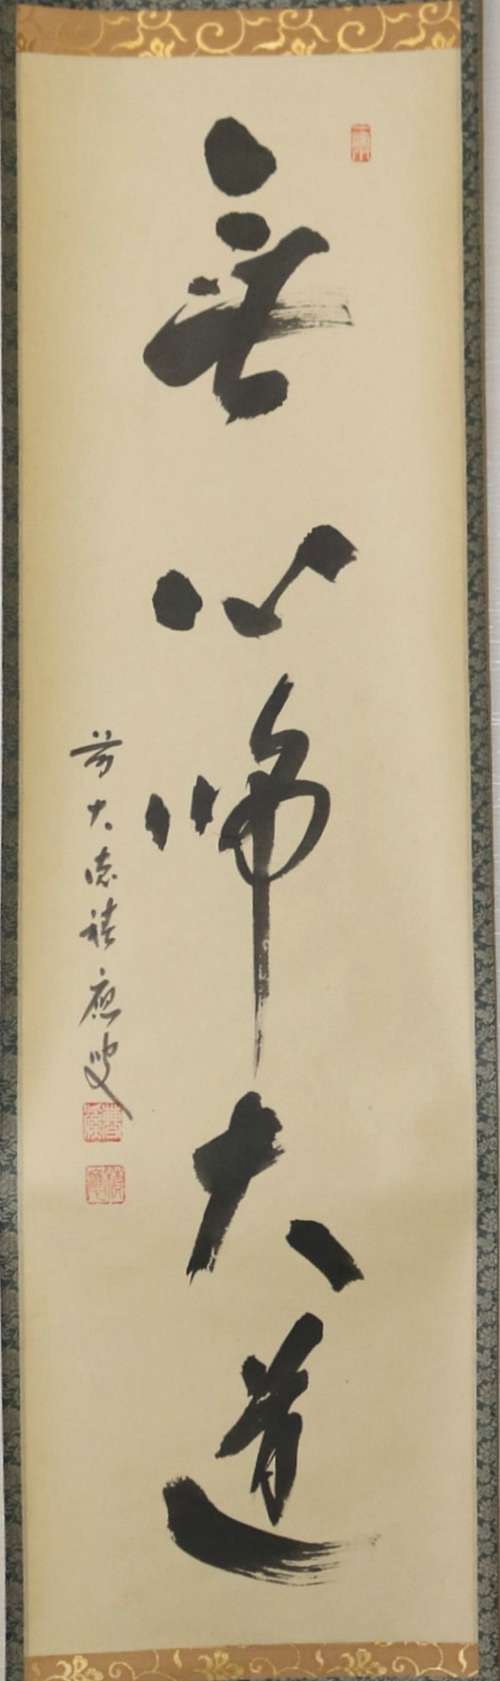 無心帰大道
前大徳積應叟